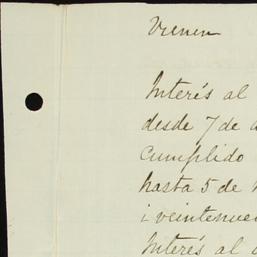 Vienen
Interés al
desde 7 de
cumplido
hasta 5 de
i veintenueve
Interés al